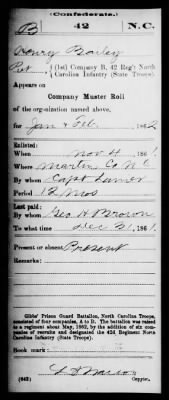 (Confederate.)
B 42 N.C.
Henry Bailey
Pvt., (1st) Company B, 42 Reg't North
Carolina Infantry (State Troops).
Appears on
Company Muster Roll
of the organization named above,
for Jan & Feb, 1862
Enlisted:
When Nov 4, 1861
Where Martin Co N.C.
By whom Capt Lamer
Period 12 mos
Last paid:
By whom Geo H Brown
To what time Dec 31, 1861
Present or absent Present
Remarks:
Gibbs' Prison Guard Battalion, North Carolina Troops,
consisted of four companies, A to D. The battalion was raised
to a regiment about May, 1862, by the addition of six companies
of recruits and designated the 42d Regiment North
Carolina Infantry (State Troops).
Book mark:
(642) Copyist.